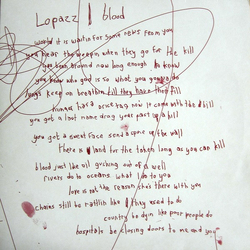 Lopazz | blood
world it is waitin for some news from you
you hear the weepin when they go for the kill
has been around now long enough to know
you know who god is so what you gonna do
lungs keep on breathin till they have their fill
humans has a price tag now it came with the bill
you got a last name drag your past up a hill
you got a sweet face send a spit up the wall
There is land for the taken long as you can kill
blood just like oil gushing out of a well
rivers do to oceans what I do to you
love is not the reason she's there with you
chains still be rattlin like they used to do
country be dyin like poor people do
hospitals be closing doors to me and you